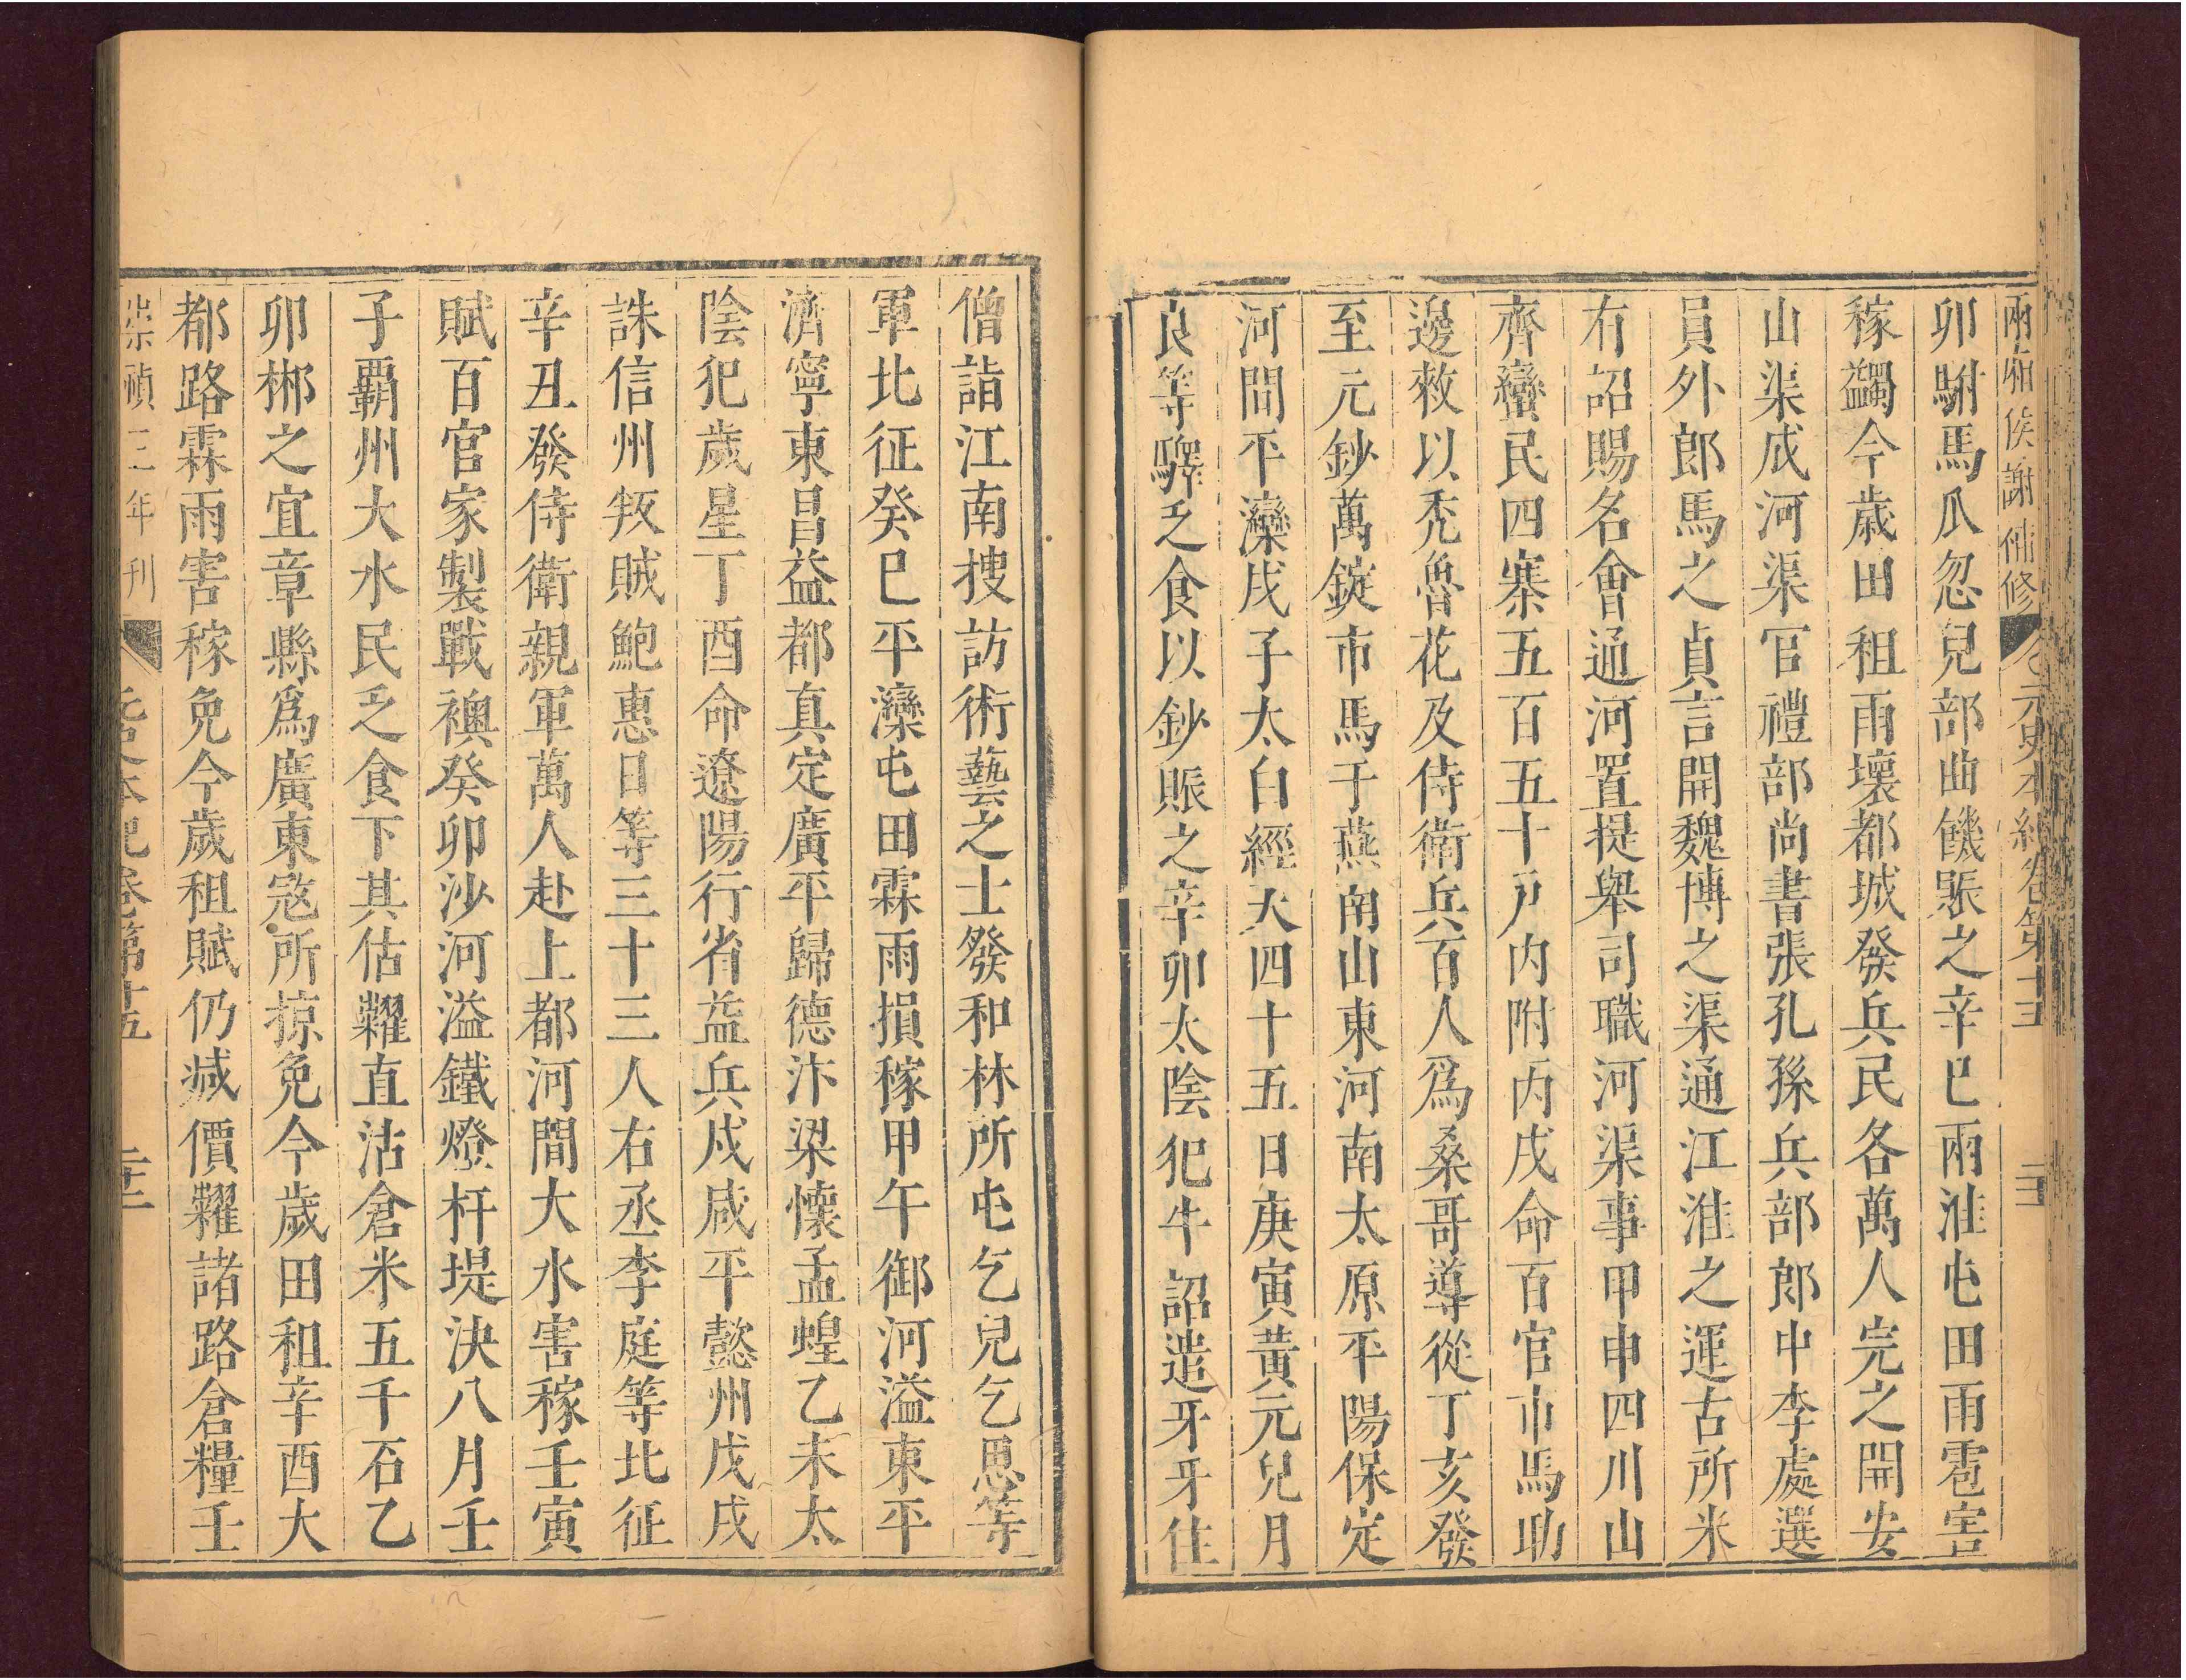 兩廂侯謝
修
元史本紀卷第十五
卯駙馬爪忽兒部曲饑賑之辛巳兩淮屯田雨雹害
稼蠲今歲田租雨壞都城發兵民各萬人完之開安
山渠成河渠官禮部尚書張孔孫兵部郎中李處選
員外郎馬之貞言開魏博之渠通江淮之運古所未
有詔賜名會通河置提舉司職河渠事甲申四川山
齊蠻民四寨五百五十戶內附丙戌命百官市馬助
邊敕以禿魯花及侍衛兵百人為桑哥導從丁亥發
至元鈔萬錠市馬于燕南山東河南太原平陽保定
河間平灤戊子太白經天四十五日庚寅黃兀兒月
良等驛乏食以鈔賑之辛卯太陰犯牛詔遣牙牙住
僧詣江南搜訪術藝之士發和林所屯乞兒乞思等
軍北征癸巳平灤屯田霖雨損稼甲午御河溢東平
濟寧東昌益都真定廣平歸德汴梁懷孟蝗乙未太
陰犯歲星丁酉命遼陽行省益兵戍咸平懿州戊戌
誅信州叛賊鮑惠日等三十三人右丞李庭等北征
辛丑發侍衛親軍萬人赴上都河間大水害稼壬寅
賦百官家製戰襖癸卯沙河溢鐵燈杆堤決八月壬
子霸州大水民乏食下其估糶直沽倉米五千石乙
卯郴之宜章縣爲廣東寇所掠免今歲田租辛酉大
都路霖雨害稼免今歲租賦仍減價糶諸路倉糧壬
崇禎三年刊
元史本紀卷第十五